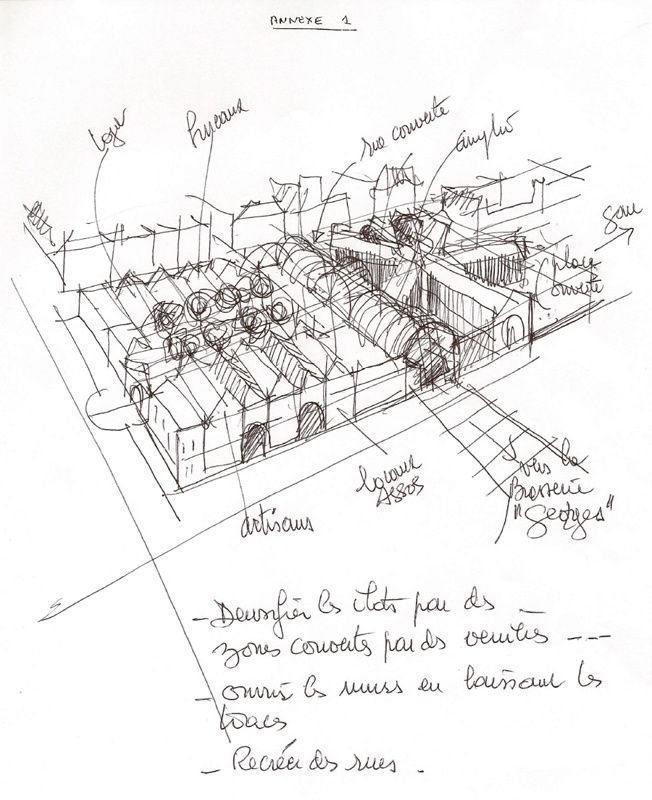 ANNEXE 1
loge
Bureaux
rue couverte
amphi
Gare
place
ouverte
locaux
ASSOS
artisans
vers la
Brasserie
"Georges"
- Densifier les îlots par des -
zones couvertes par des verrières ---
- ouvrir les murs en laissant les
traces
- Recréer des rues.